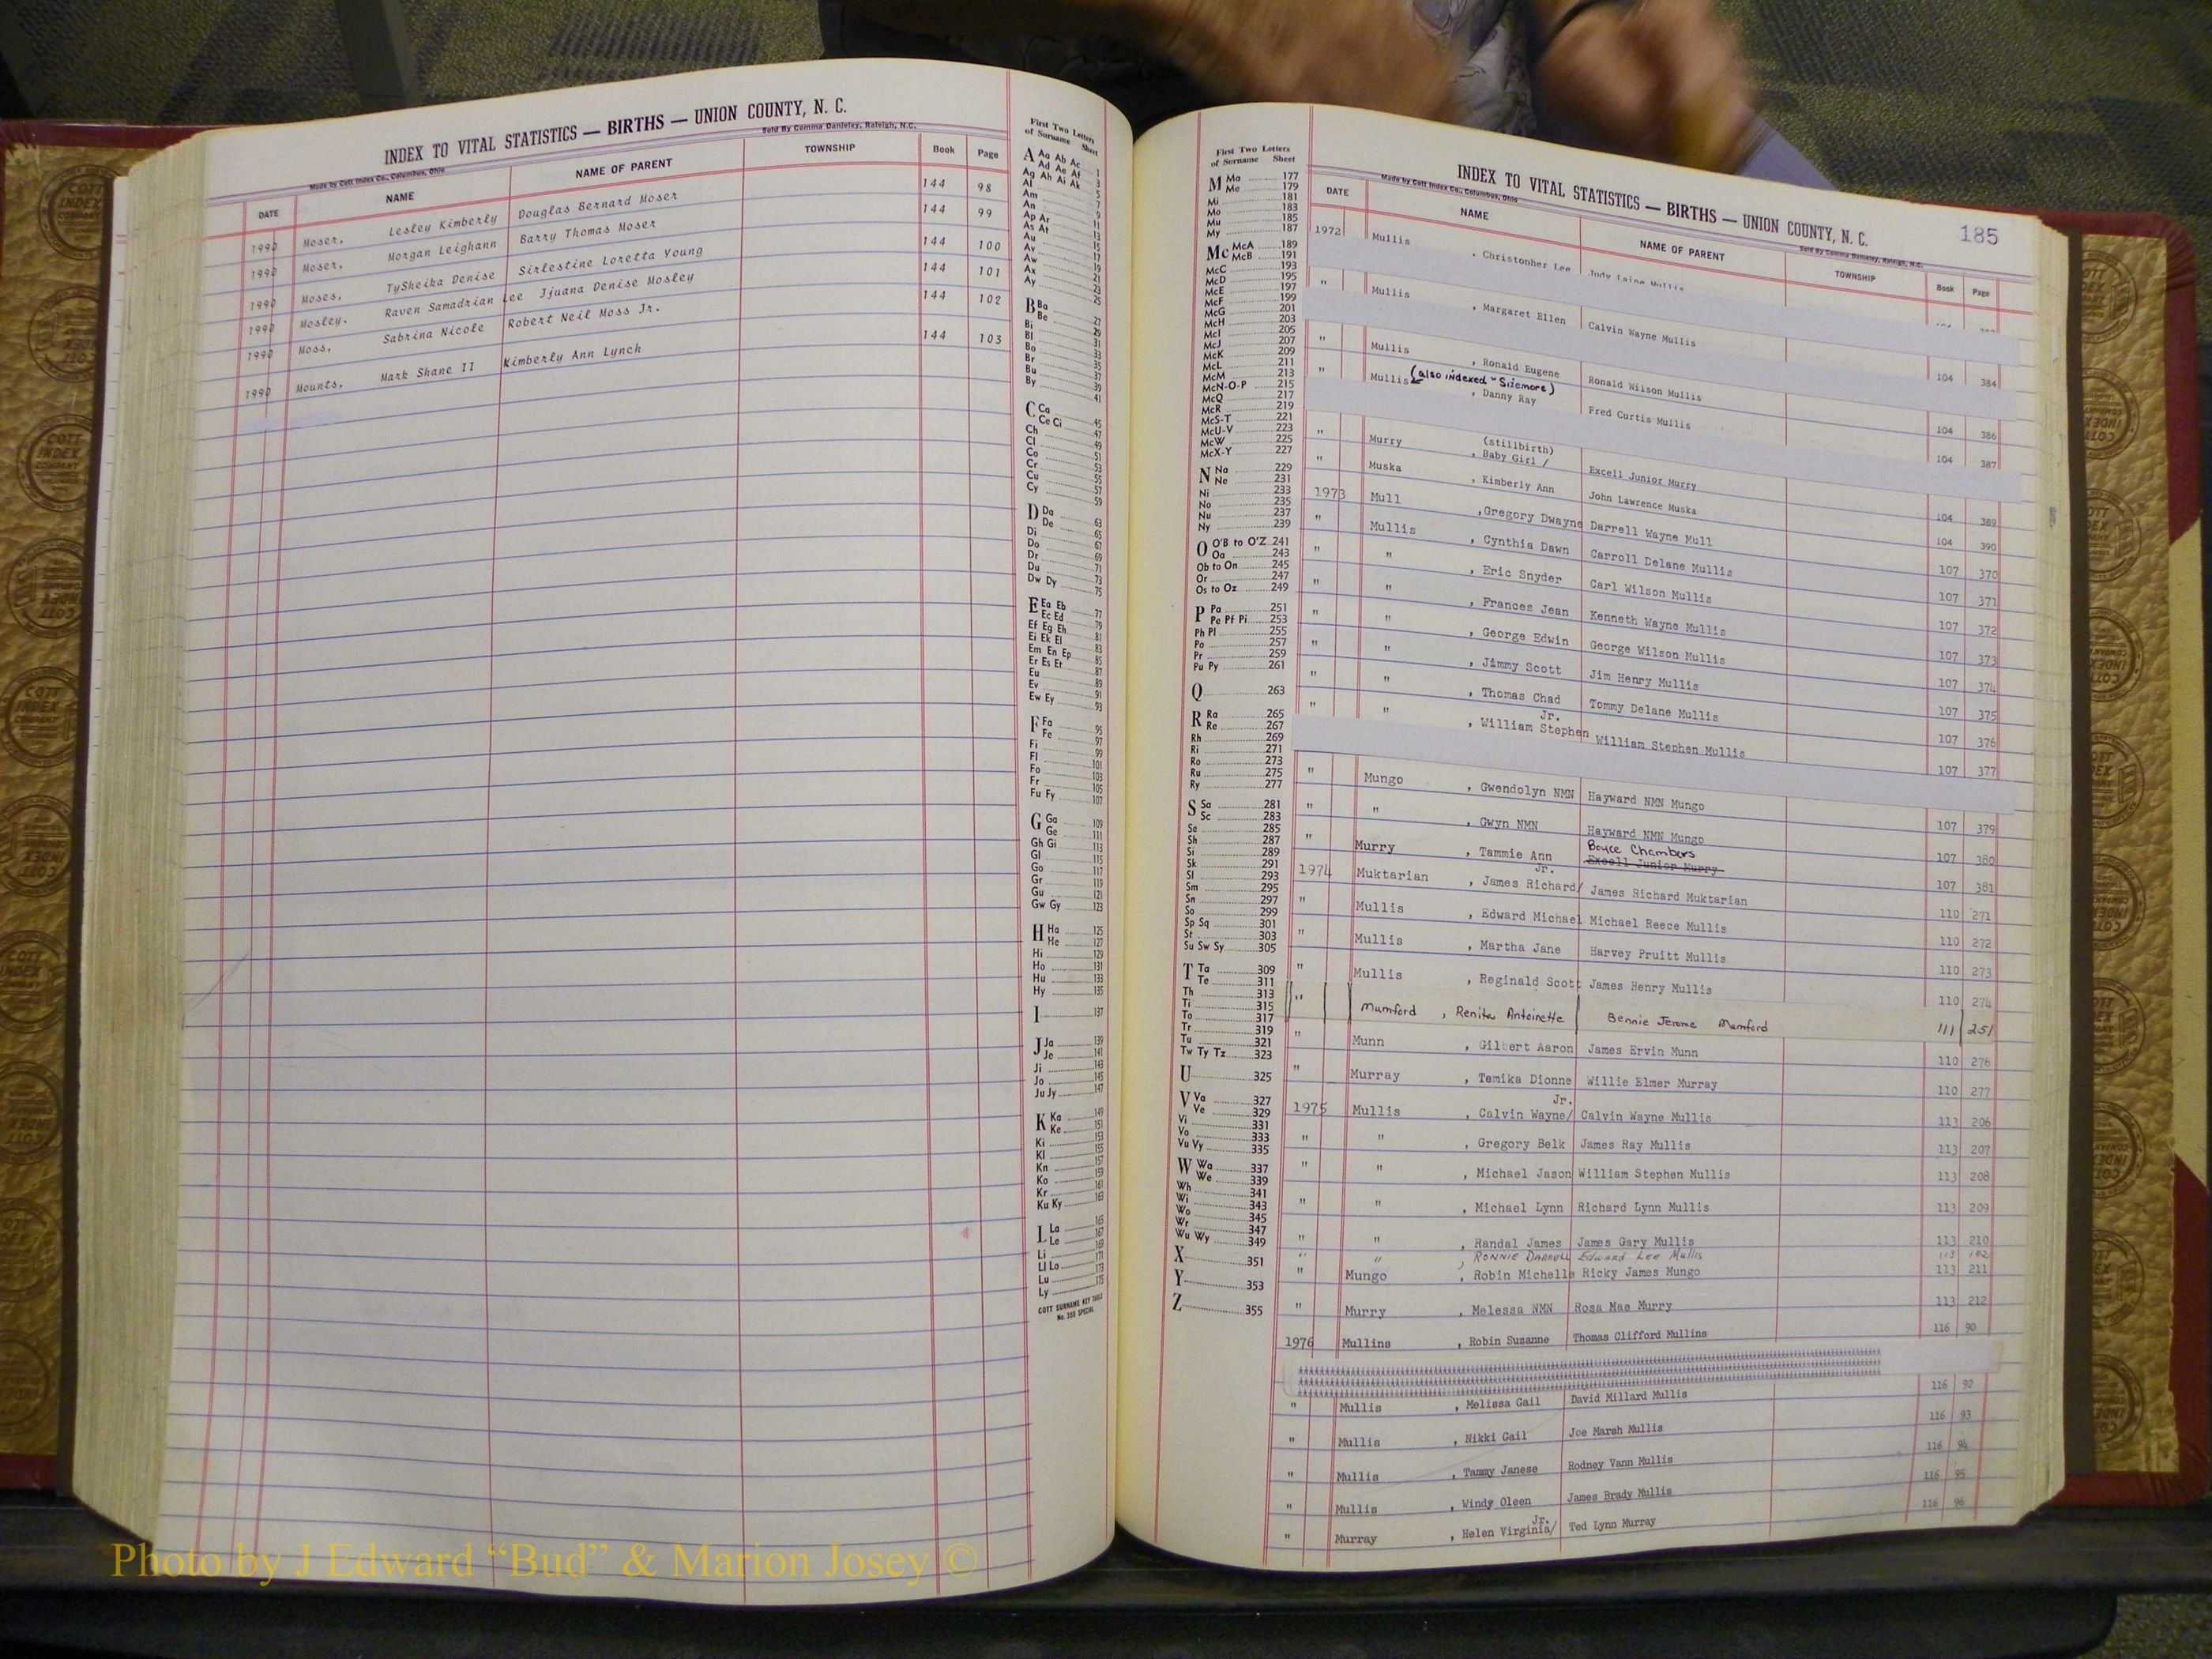 INDEX TO VITAL STATISTICS — BIRTHS — UNION COUNTY, N. C.
Made by Cott Index Co., Columbus, Ohio Sold By Comma Danieley, Raleigh, N.C.
DATE NAME NAME OF PARENT TOWNSHIP Book Page
1990 Moser, Lesley Kimberly Douglas Bernard Moser 144 98
1990 Moser, Morgan Leighann Barry Thomas Moser 144 99
1990 Moses, TySheika Denise Sirlestine Loretta Young 144 100
1990 Mosley. Raven Samadrian Lee Jjuana Denise Mosley 144 101
1990 Moss, Sabrina Nicole Robert Neil Moss Jr. 144 102
1990 Mounts, Mark Shane II Kimberly Ann Lynch 144 103
First Two Letters
of Surname Sheet
A Aa Ab Ac 1
Ad Ae Af 3
Ag Ah Ai Ak 5
Al 7
Am 9
An 11
Ap Ar 13
As At 15
Au 17
Av 19
Aw 21
Ax 23
Ay 25
B Ba 27
Be 29
Bi 31
Bl 33
Bo 35
Br 37
Bu 39
By 41
C Ca 45
Ce Ci 47
Ch 49
Cl 51
Co 53
Cr 55
Cu 57
Cy 59
D Da 63
De 65
Di 67
Do 69
Dr 71
Du 73
Dw Dy 75
E Ea Eb 77
Ec Ed 79
Ef Eg Eh 81
Ei Ek El 83
Em En Ep 85
Er Es Et 87
Eu 89
Ev 91
Ew Ey 93
F Fa 95
Fe 97
Fi 99
Fl 101
Fo 103
Fr 105
Fu Fy 107
G Ga 109
Ge 111
Gh Gi 113
Gl 115
Go 117
Gr 119
Gu 121
Gw Gy 123
H Ha 125
He 127
Hi 129
Ho 131
Hu 133
Hy 135
I 137
J Ja 139
Je 141
Ji 143
Jo 145
Ju Jy 147
K Ka 149
Ke 151
Ki 153
Kl 155
Kn 157
Ko 159
Kr 161
Ku Ky 163
L La 165
Le 167
Li 169
Ll Lo 171
Lu 173
Ly 175
COTT SURNAME KEY TABLE
No. 355 SPECIAL
First Two Letters
of Surname Sheet
M Ma 177
Me 179
Mi 181
Mo 183
Mu 185
My 187
Mc McA 189
McB 191
McC 193
McD 195
McE 197
McF 199
McG 201
McH 203
McI 205
McJ 207
McK 209
McL 211
McM 213
McN-O-P 215
McQ 217
McR 219
McS-T 221
McU-V 223
McW 225
McX-Y 227
N Na 229
Ne 231
Ni 233
No 235
Nu 237
Ny 239
O O'B to O'Z 241
Oa 243
Ob to On 245
Or 247
Os to Oz 249
P Pa 251
Pe Pf Pi 253
Ph Pl 255
Po 257
Pr 259
Pu Py 261
Q 263
R Ra 265
Re 267
Rh 269
Ri 271
Ro 273
Ru 275
Ry 277
S Sa 281
Sc 283
Se 285
Sh 287
Si 289
Sk 291
Sl 293
Sm 295
Sn 297
So 299
Sp Sq 301
St 303
Su Sw Sy 305
T Ta 309
Te 311
Th 313
Ti 315
To 317
Tr 319
Tu 321
Tw Ty Tz 323
U 325
V Va 327
Ve 329
Vi 331
Vo 333
Vu Vy 335
W Wa 337
We 339
Wh 341
Wi 343
Wo 345
Wr 347
Wu Wy 349
X 351
Y 353
Z 355
INDEX TO VITAL STATISTICS — BIRTHS — UNION COUNTY, N. C. 185
Made by Cott Index Co., Columbus, Ohio Sold By Comma Danieley, Raleigh, N.C.
DATE NAME NAME OF PARENT TOWNSHIP Book Page
1972 Mullis , Christopher Lee Judy Laine Mullis
" Mullis , Margaret Ellen Calvin Wayne Mullis 104 384
" Mullis , Ronald Eugene Ronald Wilson Mullis 104 386
(also indexed "Sizemore)
" Mullis , Danny Ray Fred Curtis Mullis 104 387
(stillbirth)
" Murry , Baby Girl / Excell Junior Murry 104 389
" Muska , Kimberly Ann John Lawrence Muska 104 390
1973 Mull ,Gregory Dwayne Darrell Wayne Mull 107 370
" Mullis , Cynthia Dawn Carroll Delane Mullis 107 371
" " , Eric Snyder Carl Wilson Mullis 107 372
" " , Frances Jean Kenneth Wayne Mullis 107 373
" " , George Edwin George Wilson Mullis 107 374
" " , Jimmy Scott Jim Henry Mullis 107 375
" " , Thomas Chad Tommy Delane Mullis 107 376
Jr.
" " , William Stephen William Stephen Mullis 107 377
" Mungo , Gwendolyn NMN Hayward NMN Mungo 107 379
" " , Gwyn NMN Hayward NMN Mungo 107 380
Boyce Chambers
" Murry , Tammie Ann Excell Junior Murry 107 381
Jr.
1974 Muktarian , James Richard/ James Richard Muktarian 110 271
" Mullis , Edward Michael Michael Reece Mullis 110 272
" Mullis , Martha Jane Harvey Pruitt Mullis 110 273
" Mullis , Reginald Scott James Henry Mullis 110 274
" Mumford , Renita Antoinette Bennie Jerome Mumford 111 251
" Munn , Gilbert Aaron James Ervin Munn 110 276
" Murray , Temika Dionne Willie Elmer Murray 110 277
Jr.
1975 Mullis , Calvin Wayne/ Calvin Wayne Mullis 113 206
" " , Gregory Belk James Ray Mullis 113 207
" " , Michael Jason William Stephen Mullis 113 208
" " , Michael Lynn Richard Lynn Mullis 113 209
" " , Randal James James Gary Mullis 113 210
" " , RONNIE DARRELL Edward Lee Mullis 113 192
" Mungo , Robin Michelle Ricky James Mungo 113 211
" Murry , Melessa NMN Rosa Mae Murry 113 212
1976 Mullins , Robin Suzanne Thomas Clifford Mullins 116 90
" Mullis , Melissa Gail David Millard Mullis 116 92
" Mullis , Nikki Gail Joe Marsh Mullis 116 93
" Mullis , Tammy Janese Rodney Vann Mullis 116 94
" Mullis , Windy Oleen James Brady Mullis 116 95
Jr.
" Murray , Helen Virginia/ Ted Lynn Murray 116 96
Photo by J Edward “Bud” & Marion Josey ©